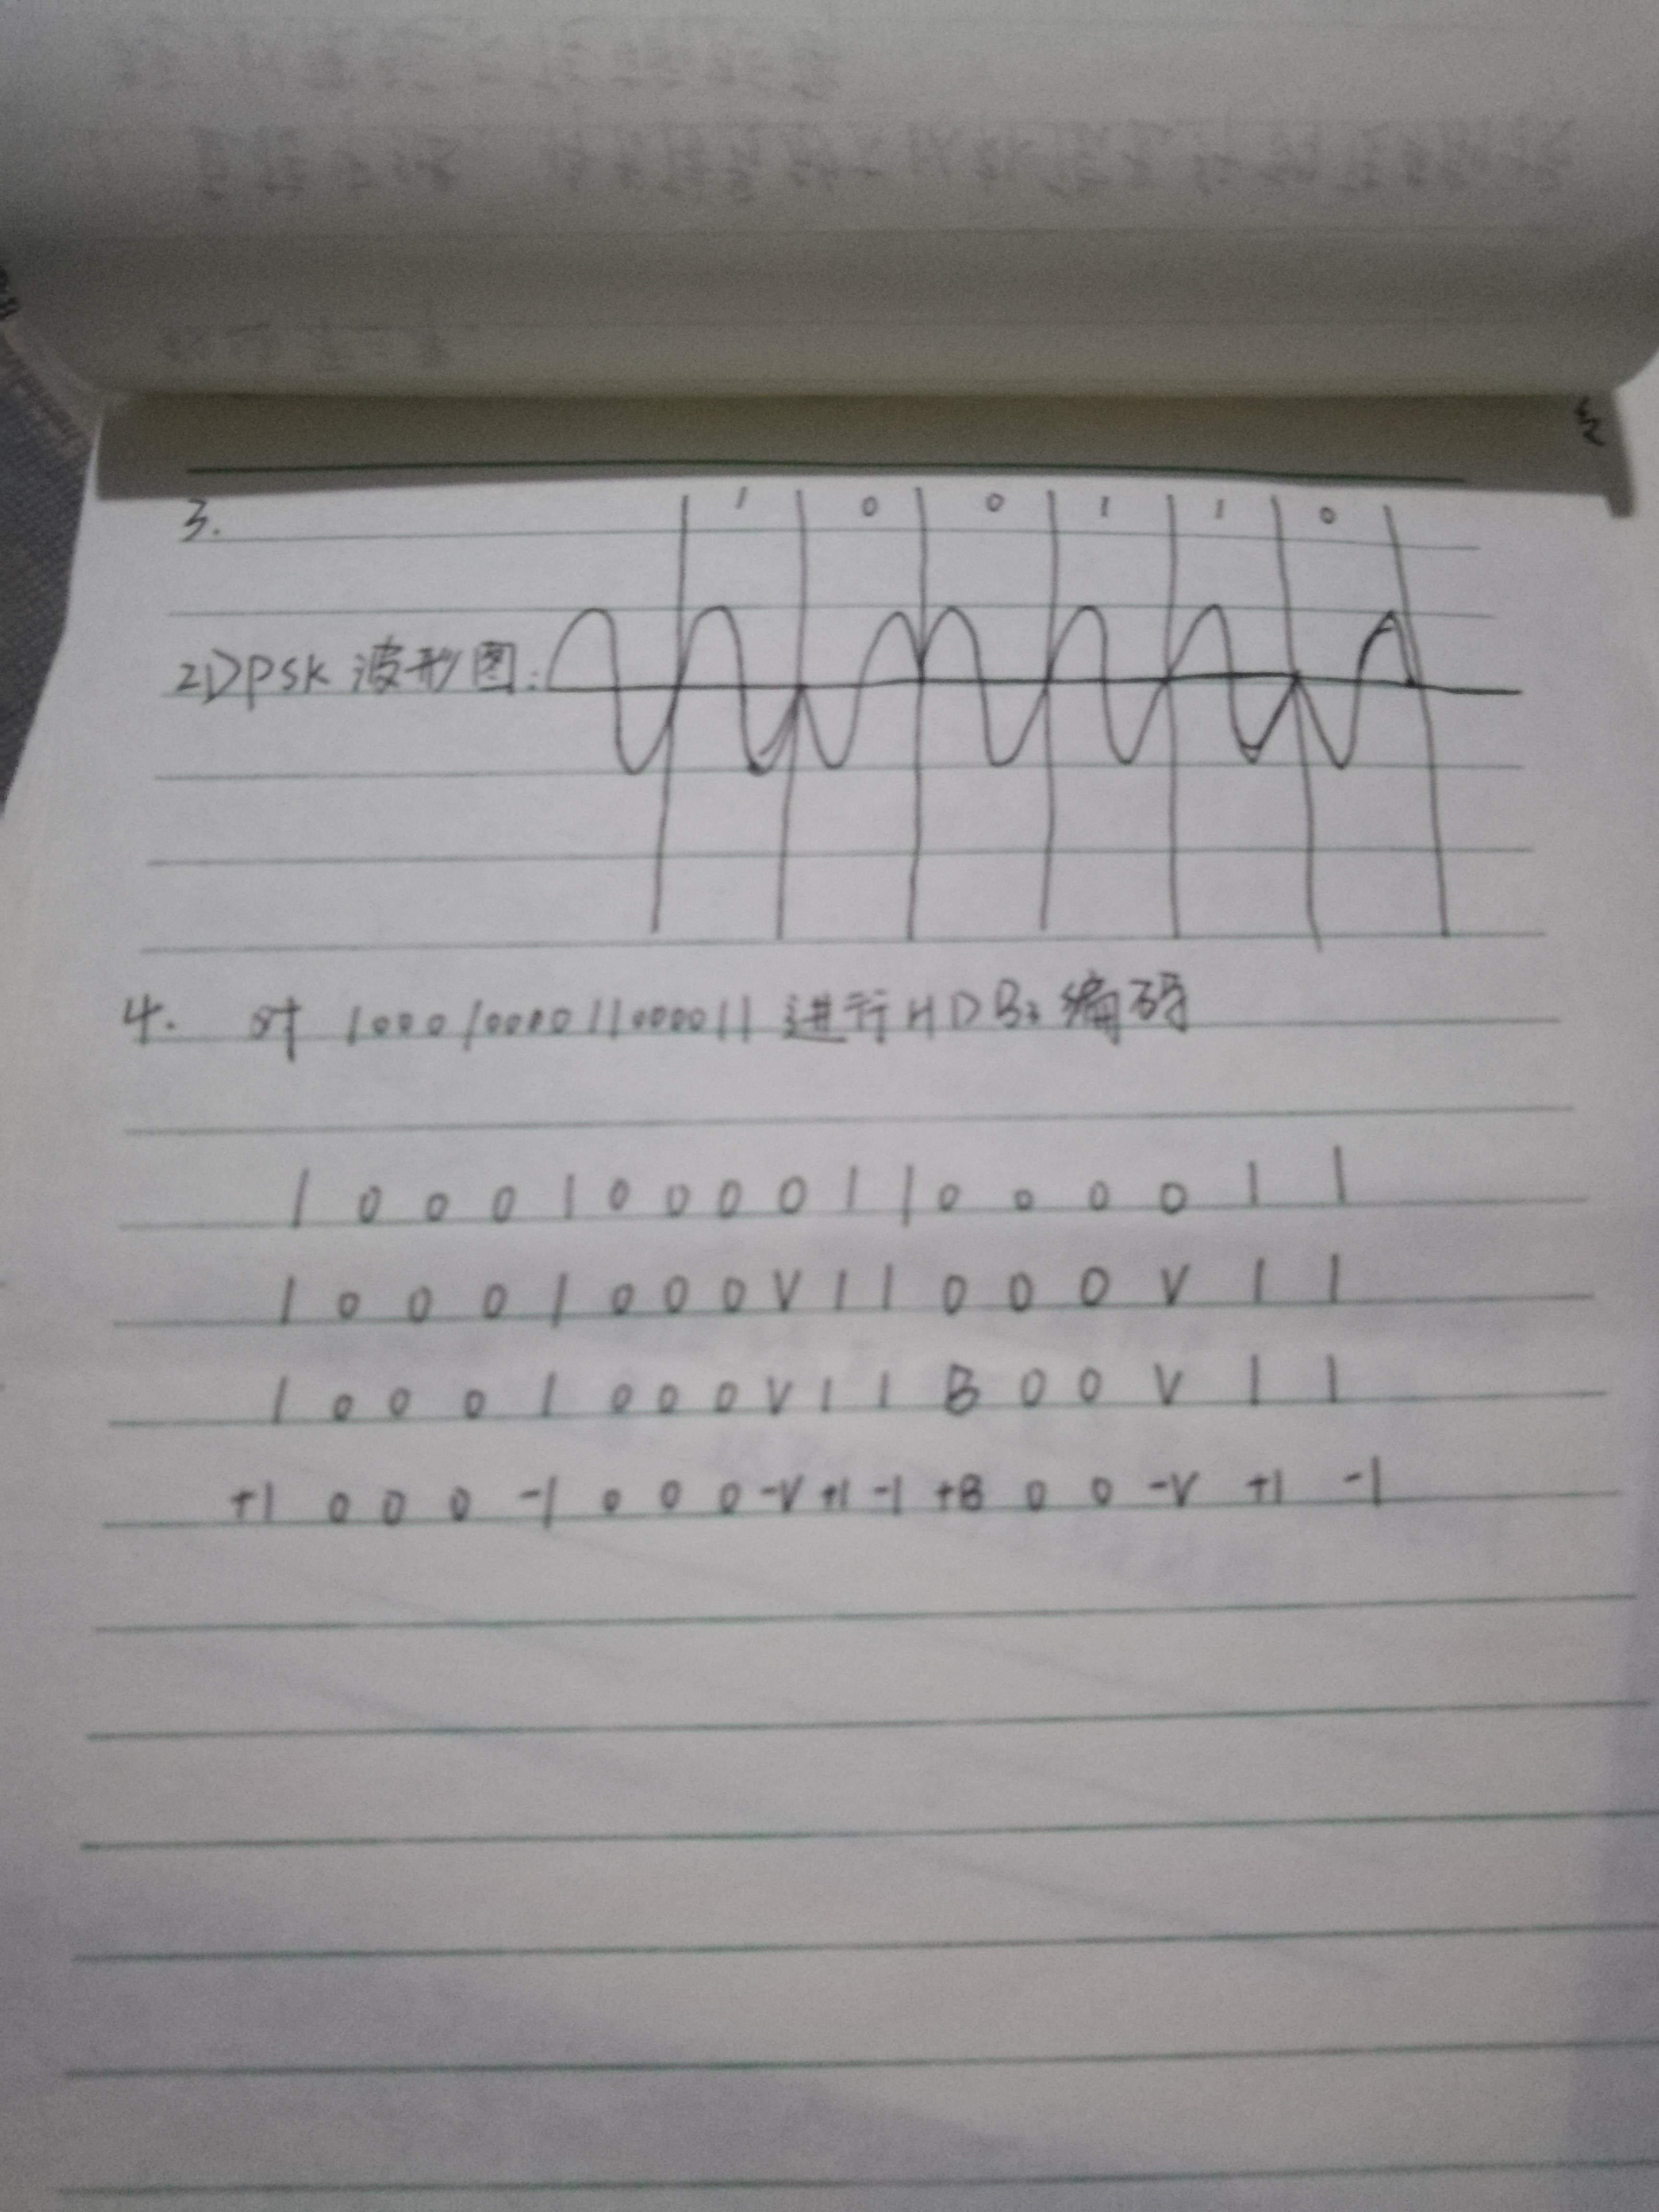 3.
1 0 0 1 1 0
2DPSK 波形图:
4. 对 10001000011000011 进行HDB3编码
1 0 0 0 1 0 0 0 0 1 1 0 0 0 0 1 1
1 0 0 0 1 0 0 0 V 1 1 0 0 0 V 1 1
1 0 0 0 1 0 0 0 V 1 1 B 0 0 V 1 1
+1 0 0 0 -1 0 0 0 -V +1 -1 +B 0 0 -V +1 -1